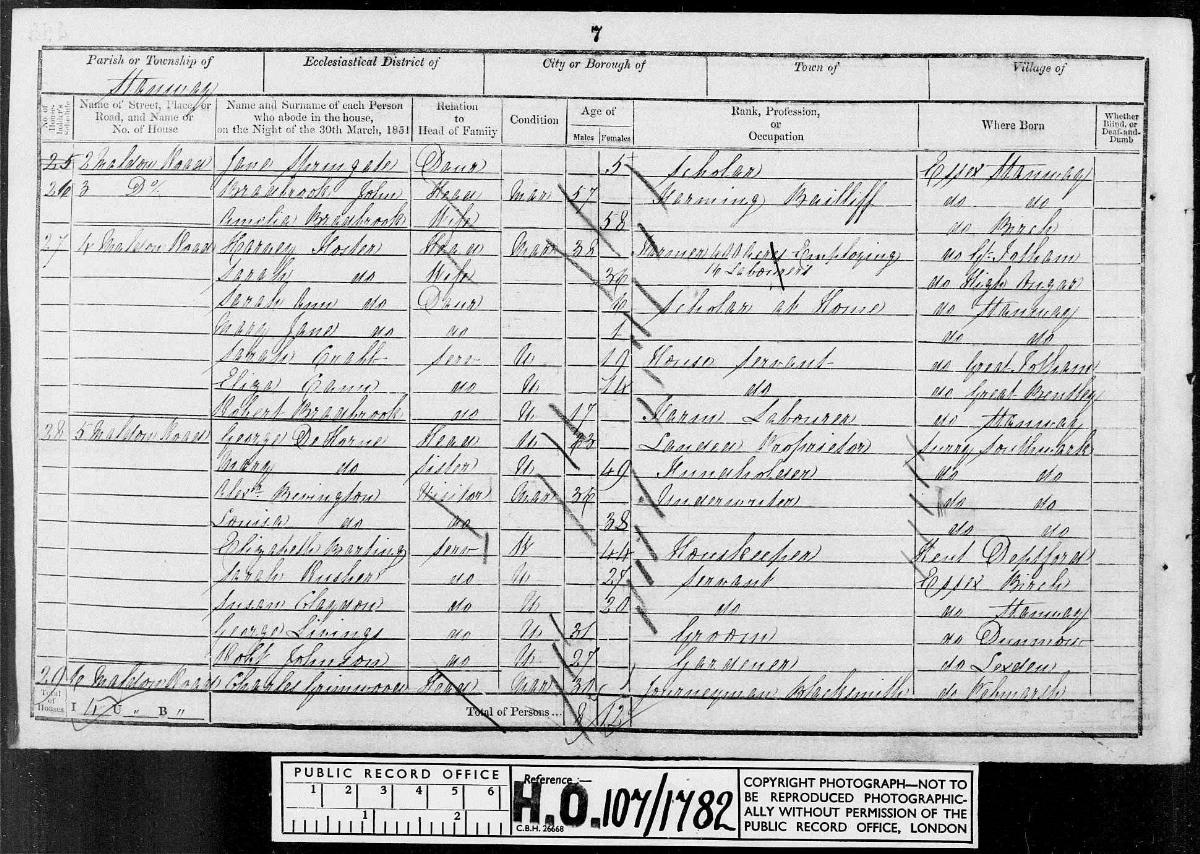 7
Parish or Township of Ecclesiastical District of City or Borough of Town of Village of
Stanway
No. of House-holder's Schedule Name of Street, Place, or Road, and Name or No. of House Name and Surname of each Person who abode in the house, on the Night of the 30th March, 1851 Relation to Head of Family Condition Age of Males Females Rank, Profession, or Occupation Where Born Whether Blind, or Deaf-and-Dumb
25 2 Maldon Road Jane Springate Daur 5 Scholar Essex Stanway
26 3 Do/. Bradbrook John Head Mar 57 Farming Bailiff do do
Amelia Bradbrook Wife 58 do Birch
27 4 Maldon Road Harvey Foster Head Mar 38 Farmer Acres Employing do Gt. Totham
16 Labourers
Sarah do Wife 36 do High Ongar
Sarah Ann do Daur 6 Scholar at Home do Stanway
Mary Jane do do 1 do do
Sarah Serv U 19 House Servant do Great Totham
Eliza Cann do U 14 do do Great Bentley
Robert Bradbrook do U 17 Farm Labourer do Stanway
28 5 Maldon Road George De Horne Head U Landed Proprietor Surry Southwark
Mary do Sister U 49 Fundholder do do
Alexr. Bevington Visitor Mar 36 Underwriter do do
Louisa do do 38 do do
Elizabeth Barting Serv 44 Housekeeper Kent Deptford
Sarah Rusher do U 27 Servant Essex Birch
Susan Clagdon do U 20 do do Stanway
George Livings do U 31 Groom do Dunmow
Robt. Johnson do U 27 Gardener do Lexden
29 6 Maldon Road Charles Grimwood Head Mar 32 Journeyman Blacksmith do Pebmarsh
Total of Houses I 4 U " B " Total of Persons ... 8 12
PUBLIC RECORD OFFICE
1 2 3 4 5 6
1 2
Reference :—
H.O. 107/1782
C.B.H. 26668
COPYRIGHT PHOTOGRAPH—NOT TO
BE REPRODUCED PHOTOGRAPHIC-
ALLY WITHOUT PERMISSION OF THE
PUBLIC RECORD OFFICE, LONDON